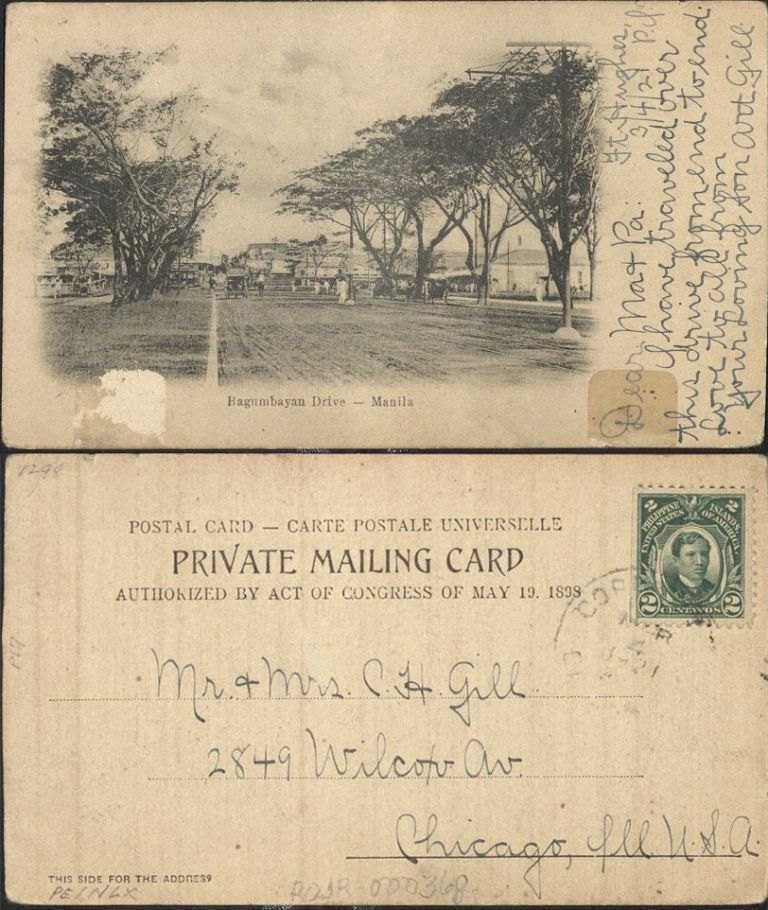 Ft. Hughes,
3/4/21 P.I.
Dear Ma & Pa:
I have traveled over
this drive from end to end.
Love to all from
Your loving son Art Gill
Bagumbayan Drive — Manila
1298
POSTAL CARD — CARTE POSTALE UNIVERSELLE
PRIVATE MAILING CARD
AUTHORIZED BY ACT OF CONGRESS OF MAY 19. 1898
2 2
PHILIPPINE ISLANDS
UNITED STATES OF AMERICA
2 CENTAVOS 2
Mr. & Mrs. C. H. Gill
2849 Wilcox Av.
Chicago, Ill U.S.A.
THIS SIDE FOR THE ADDRESS
PE/NLX